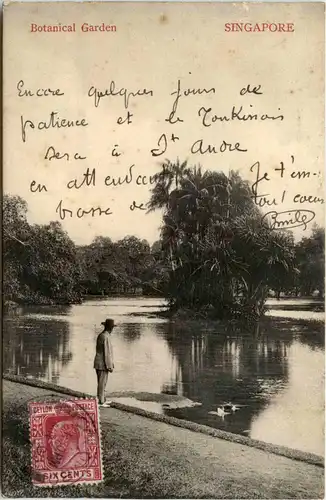 Botanical Garden
SINGAPORE
Encore quelques jours de
patience et le Tonkinois
sera à St André
en attendant Je t'em-
brasse de tout cœur
Emile
CEYLON POSTAGE
SIX CENTS